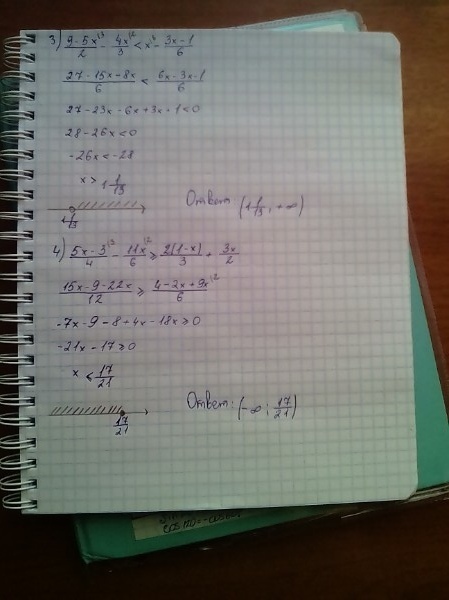 3) (9-5x)/2 ^13 - 4x/3 ^12 < x ^6 - (3x-1)/6
(27-15x-8x)/6 < (6x-3x-1)/6
27-23x-6x+3x-1<0
28-26x<0
-26x<-28
x> 1 1/13
1 1/13
Ответ: (1 1/13; +∞)
4) (5x-3)/4 ^13 - 11x/6 ^12 ≥ 2(1-x)/3 + 3x/2
(15x-9-22x)/12 ≥ (4-2x+9x)/6 ^12
-7x-9-8+4x-18x≥0
-21x-17≥0
x ≤ 17/21
17/21
Ответ: (-∞; 17/21)